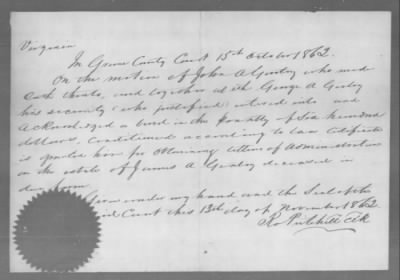 Virginia
In Greene County Court 15th October 1862.
On the motion of John A who made
Oath thereto, and together with George A
his security (who justified) entered into and
Acknowledged a bond in the penalty of Six hundred
dollars, Conditioned according to law Certificate
is granted him for obtaining letters of Administration
on the estate of James A deceased in
due form
Given under my hand and the Seal of the
said Court this 13th day of November 1862.
Ro Pritchett Clk